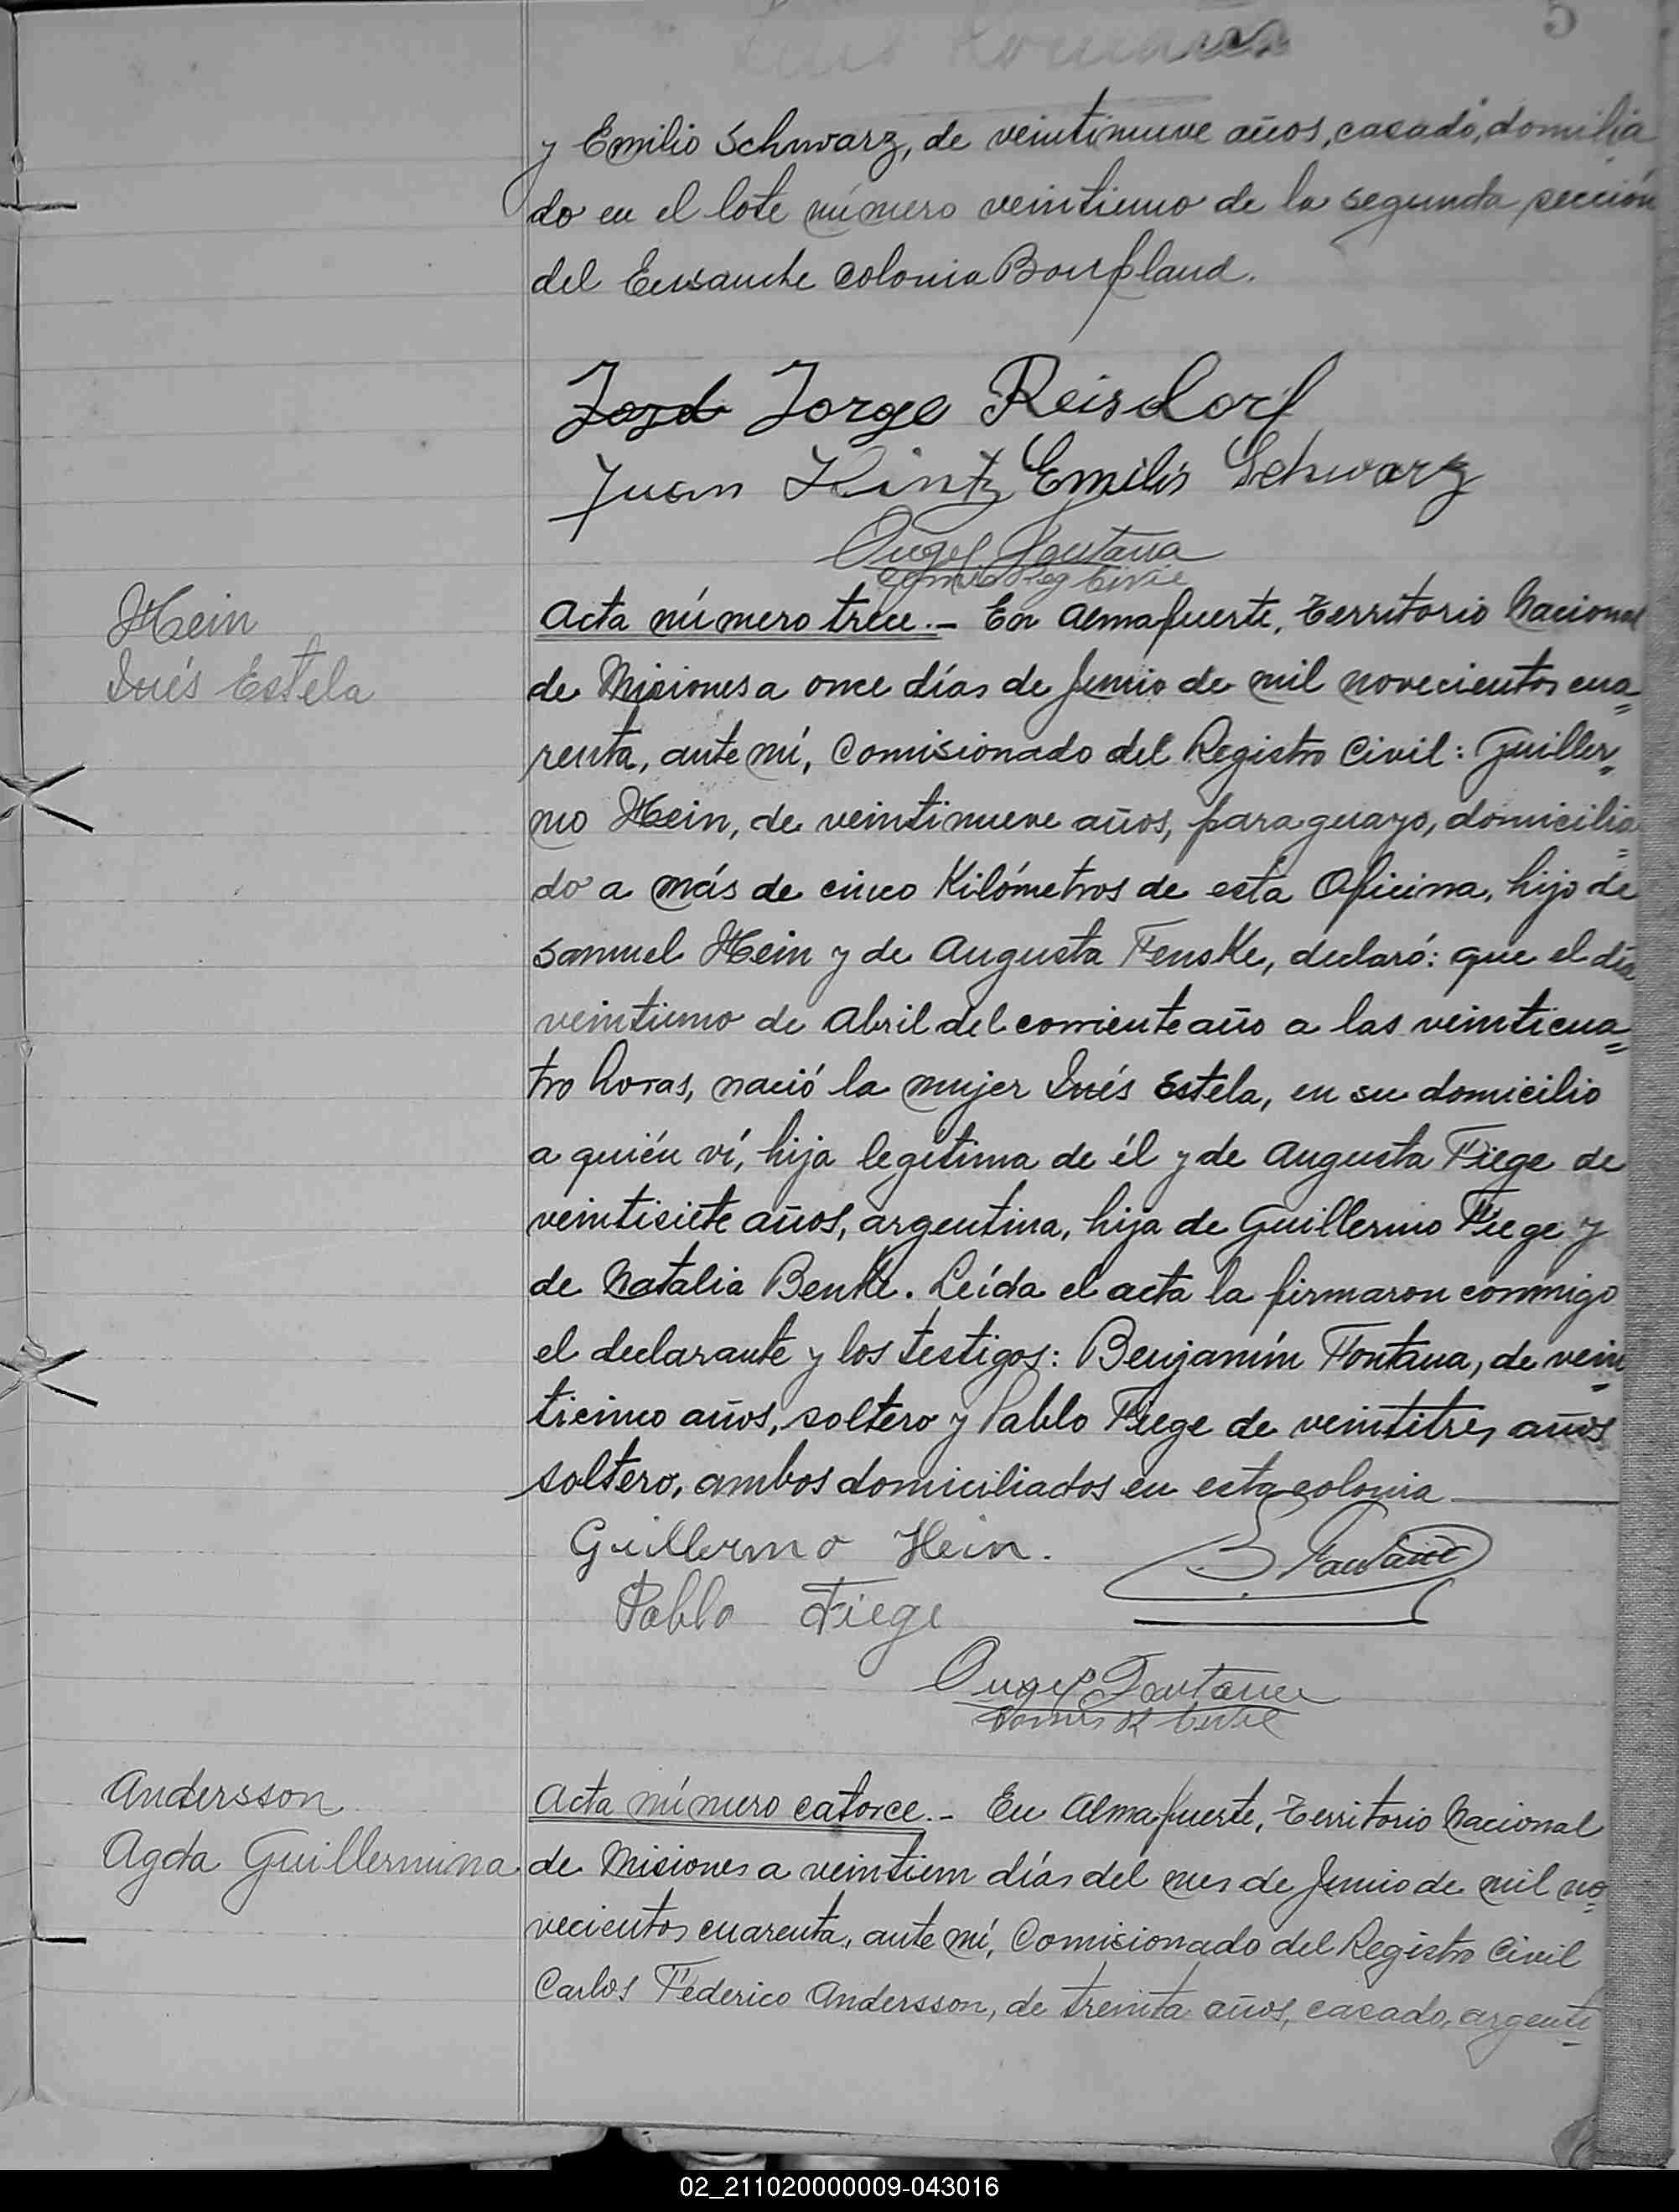 5
y Emilio Schwarz, de veintinueve años, casado, domilia
do en el lote número veintiuno de la segunda sección
del Ensanche colonia Bonpland.
José Jorge Reisdorf
Juan Kintz Emilio Schwarz
Angel Fontana
Comis Reg Civil
Hein
Inés Estela
Acta número trece.- En Almafuerte, Territorio Nacional
de Misiones a once días de Junio de mil novecientos cua=
renta, ante mí, Comisionado del Registro Civil: Guiller=
mo Hein, de veintinueve años, paraguayo, domicilia=
do a más de cinco Kilómetros de esta Oficina, hijo de
Samuel Hein y de Augusta Fenske, declaró: que el día
veintiuno de Abril del corriente año a las veinticua=
tro horas, nació la mujer Inés Estela, en su domicilio
a quién ví, hija legítima de él y de Augusta Fiege de
veintisiete años, argentina, hija de Guillermo Fiege y
de Natalia Benke. Leída el acta la firmaron conmigo
el declarante y los testigos: Benjamín Fontana, de vein=
ticinco años, soltero y Pablo Fiege de veintitres años
soltero, ambos domiciliados en esta colonia
Guillermo Hein. B. Fontana
Pablo Fiege
Angel Fontana
Comis R Civil
Andersson
Agda Guillermina
Acta número catorce.- En Almafuerte, Territorio Nacional
de Misiones a veintiun días del mes de Junio de mil no=
vecientos cuarenta, ante mí, Comisionado del Registro Civil
Carlos Federico Andersson, de treinta años, casado, argenti=
02_211020000009-043016